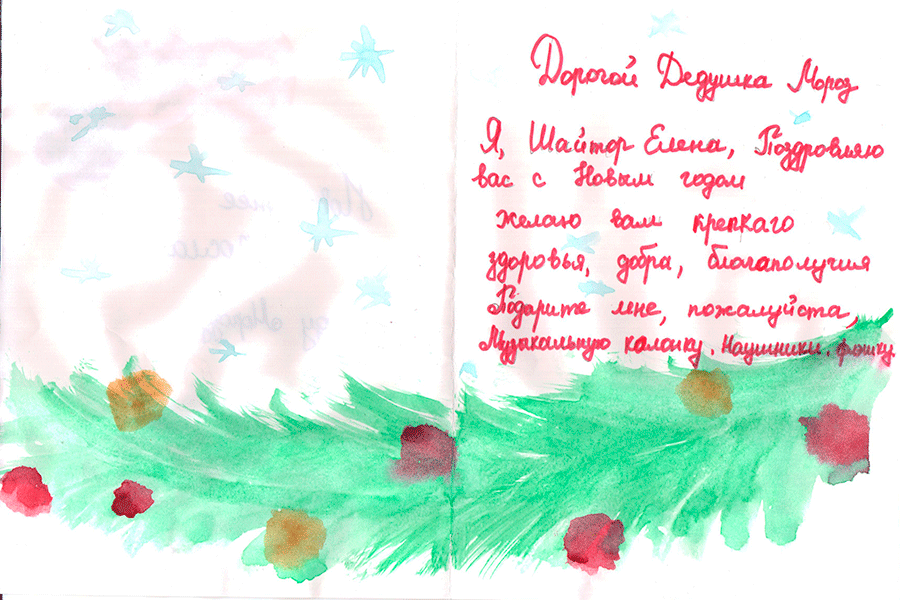 Дорогой Дедушка Мороз
Я, Шайтор Елена, Поздровляю
вас с Новым годом
желаю вам крепкаго
здоровья, добра, благаполучия
Подарите мне, пожалуйста,
Музыкальную калонку. Наушники. флшку